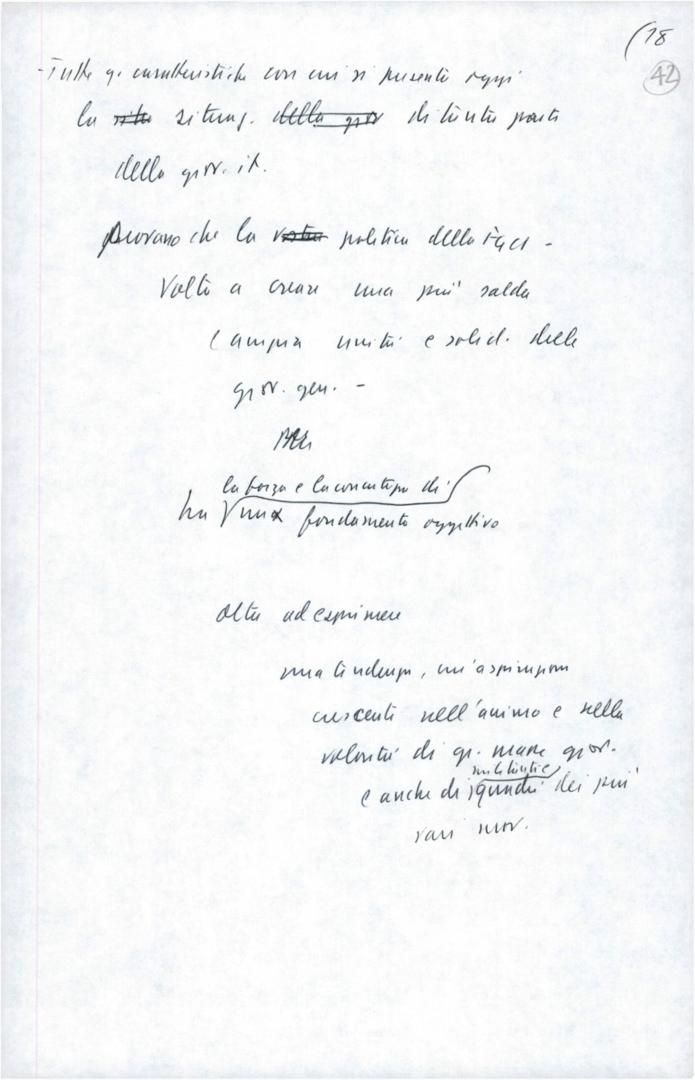 (18
42
- Tutte q. caratteristiche con cui si presenta oggi
la situaz. di tanta parte
della giov. it.
provano che la politica della FGCI -
volta a creare una più salda
e ampia unità e solid. delle
giov. gen. -
la forza e la concretezza di
ha un fondamento oggettivo
oltre ad esprimere
una tendenza, un'aspirazione
crescente nell'animo e nella
volontà di gr. masse giov.
militanti e
e anche di quadri dei più
vari mov.